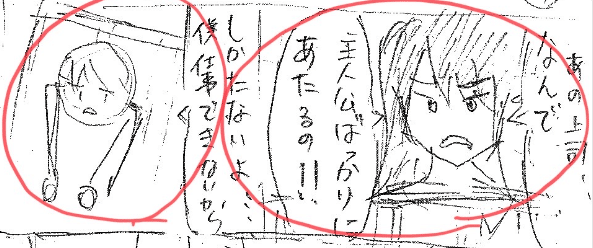 あの上司
なんで
主人公ばっかりに
あたるの!!
しかたないよ…
僕仕事できないから